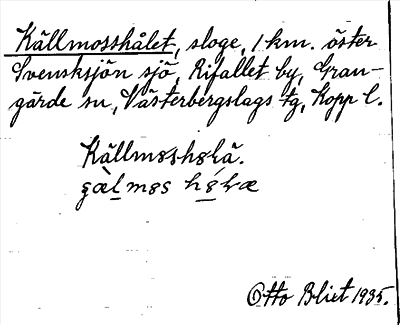 Källmosshålet, sloge, 1 km. öster
Svensksjön sjö, Rifallet by, Gran-
gärde sn, Västerbergslags tg, Kopp l.
Källmosshola.
Otto Blixt 1935.